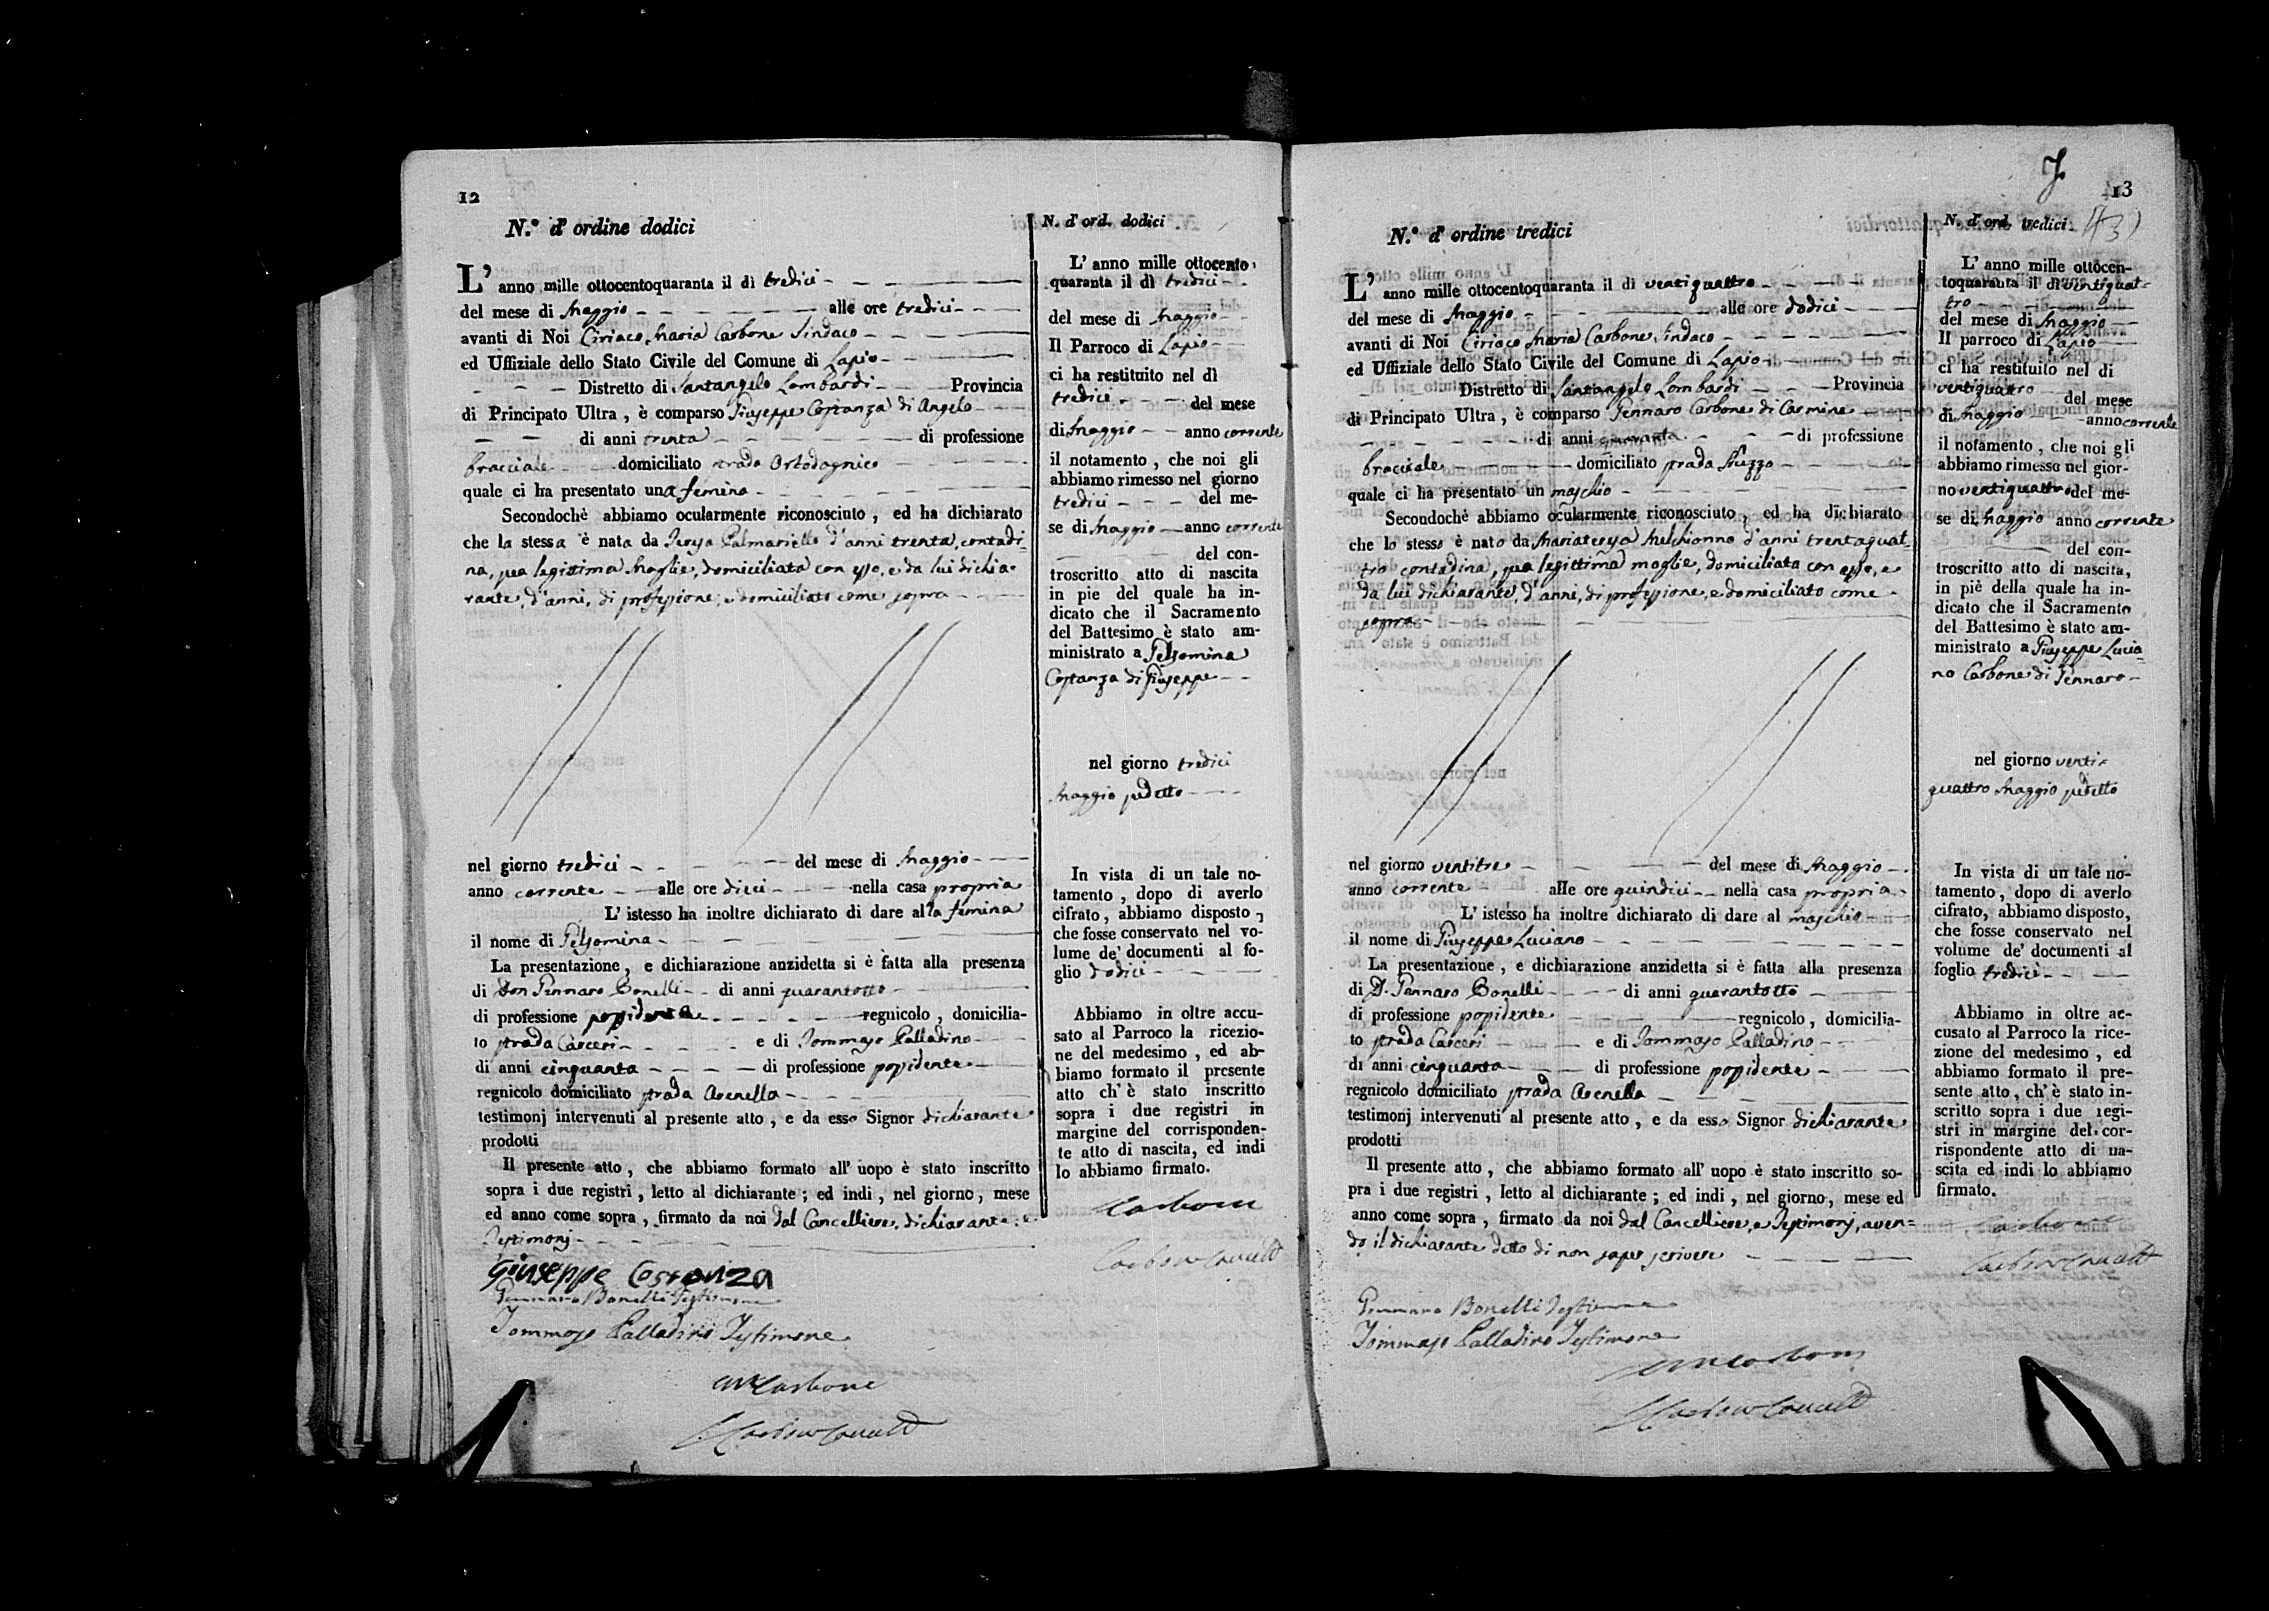 12
N.° d' ordine dodici
L' anno mille ottocentoquaranta il dì tredici
del mese di Maggio alle ore tredici
avanti di Noi Ciriaco Maria Carbone Sindaco
ed Uffiziale dello Stato Civile del Comune di Lapio
Distretto di Santangelo Lombardi Provincia
di Principato Ultra, è comparso Giuseppe Costanza di Angelo
di anni trenta di professione
bracciale domiciliato strada Ortodagnico
quale ci ha presentato una femina
Secondochè abbiamo ocularmente riconosciuto, ed ha dichiarato
che la stessa è nata da Palmariello d'anni trenta, contadi-
na, sua legittima Moglie, domiciliata con esso, e da lui dichia-
rante, d'anni, di professione, e domiciliato come sopra
nel giorno tredici del mese di Maggio
anno corrente alle ore dieci nella casa propria
L' istesso ha inoltre dichiarato di dare alla femina
il nome di Gelsomina
La presentazione, e dichiarazione anzidetta si è fatta alla presenza
di Don Gennaro Bonelli di anni quarantotto
di professione possidente regnicolo, domicilia-
to strada Carceri e di Tommaso Palladino
di anni cinquanta di professione possidente
regnicolo domiciliato strada Arenella
testimonj intervenuti al presente atto, e da esso Signor dichiarante
prodotti
Il presente atto, che abbiamo formato all' uopo è stato inscritto
sopra i due registri, letto al dichiarante; ed indi, nel giorno, mese
ed anno come sopra, firmato da noi dal Cancelliere, dichiarante, e
Testimonj
Giuseppe Costanza
Gennaro Bonelli Testimone
Tommaso Palladino Testimone
CMCarbone
N. d' ord. dodici
L' anno mille ottocento
quaranta il dì tredici
del mese di Maggio
Il Parroco di Lapio
ci ha restituito nel dì
tredici del mese
di Maggio anno corrente
il notamento, che noi gli
abbiamo rimesso nel giorno
tredici del me-
se di Maggio anno corrente
del con-
troscritto atto di nascita
in pie del quale ha in-
dicato che il Sacramento
del Battesimo è stato am-
ministrato a Gelsomina
Costanza di Giuseppe
nel giorno tredici
Maggio sudetto
In vista di un tale no-
tamento, dopo di averlo
cifrato, abbiamo disposto,
che fosse conservato nel vo-
lume de' documenti al fo-
glio dodici
Abbiamo in oltre accu-
sato al Parroco la ricezio-
ne del medesimo, ed ab-
biamo formato il presente
atto ch' è stato inscritto
sopra i due registri in
margine del corrisponden-
te atto di nascita, ed indi
lo abbiamo firmato.
Carbone
13
N.° d' ordine tredici
L' anno mille ottocentoquaranta il dì ventiquattro
del mese di Maggio alle ore dodici
avanti di Noi Ciriaco Maria Carbone Sindaco
ed Uffiziale dello Stato Civile del Comune di Lapio
Distretto di Santangelo Lombardi Provincia
di Principato Ultra, è comparso Gennaro Carbone di Carmine
di anni quaranta di professione
bracciale domiciliato strada
quale ci ha presentato un maschio
Secondochè abbiamo ocularmente riconosciuto, ed ha dichiarato
che lo stesso è nato da Mariateresa Melchionno d'anni trentaquat-
tro contadina, sua legittima moglie, domiciliata con esso, e
da lui dichiarante, d'anni, di professione, e domiciliato come
sopra
nel giorno ventitre del mese di Maggio
anno corrente alle ore quindici nella casa propria
L' istesso ha inoltre dichiarato di dare al maschio
il nome di Giuseppe Luciano
La presentazione, e dichiarazione anzidetta si è fatta alla presenza
di D. Gennaro Bonelli di anni quarantotto
di professione possidente regnicolo, domicilia-
to strada Carceri e di Tommaso Palladino
di anni cinquanta di professione possidente
regnicolo domiciliato strada Arenella
testimonj intervenuti al presente atto, e da esso Signor dichiarante
prodotti
Il presente atto, che abbiamo formato all' uopo è stato inscritto so-
pra i due registri, letto al dichiarante; ed indi, nel giorno, mese ed
anno come sopra, firmato da noi dal Cancelliere, e Testimonj, aven=
do il dichiarante detto di non saper scrivere
Gennaro Bonelli Testimone
Tommaso Palladino Testimone
CMCarbone
N. d' ord. tredici (13)
L' anno mille ottocen-
toquaranta il dì ventiquat-
tro
del mese di Maggio
Il parroco di Lapio
ci ha restituito nel dì
ventiquattro del mese
di Maggio anno corrente
il notamento, che noi gli
abbiamo rimesso nel gior-
no ventiquattro del me-
se di Maggio anno corrente
del con-
troscritto atto di nascita,
in piè della quale ha in-
dicato che il Sacramento
del Battesimo è stato am-
ministrato a Giuseppe Lucia-
no Carbone di Gennaro
nel giorno venti-
quattro Maggio sudetto
In vista di un tale no-
tamento, dopo di averlo
cifrato, abbiamo disposto,
che fosse conservato nel
volume de' documenti al
foglio tredici
Abbiamo in oltre ac-
cusato al Parroco la rice-
zione del medesimo, ed
abbiamo formato il pre-
sente atto, ch' è stato in-
scritto sopra i due regi-
stri in margine del cor-
rispondente atto di na-
scita ed indi lo abbiamo
firmato.
Carbone